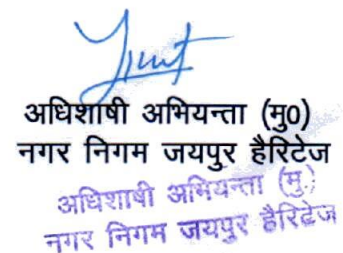 अधिशाषी अभियन्ता (मु0)
नगर निगम जयपुर हैरिटेज
अधिशाषी अभियन्ता (मु.)
नगर निगम जयपुर हैरिटेज